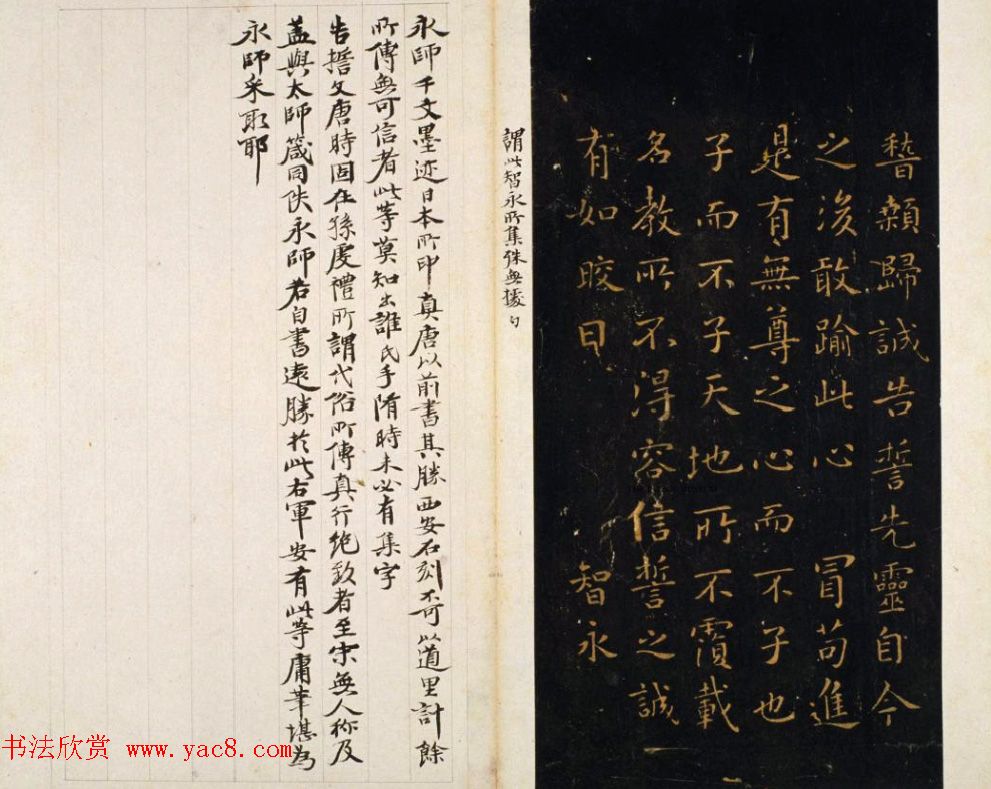 稽顙歸誠告誓先靈自今
之後敢踰此心 冒苟進
是有無尊之心而不子也
子而不子天地所不覆載
名教所不得容信誓之誠
有如皎日 智永
謂此智永所集殊無據
永師千文墨迹日本所印真唐以前書其勝西安石刻不可以道里計餘
所傳無可信者此等莫知出誰氏手隋時未必有集字
告誓文唐時固在孫虔禮所謂代俗所傳真行絶致者至宋無人称及
蓋與太師箴同佚永師若自書遠勝於此右軍安有此等庸筆堪為
永師采取耶
书法欣赏 www.yac8.com